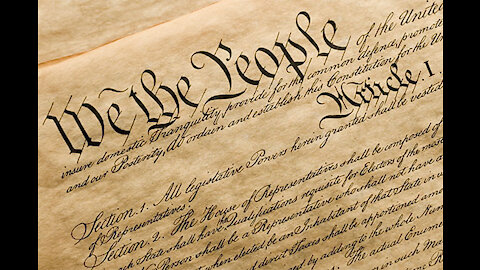 We the People of the United
insure domestic Tranquility, provide for the common defence, promote
and our Posterity, do ordain and establish this Constitution for the Uni
Article. I.
Section. 1. All legislative Powers herein granted shall be vested
of Representatives.
Section. 2. The House of Representatives shall be composed of
each State shall have Qualifications requisite for Electors of the most
No Person shall be a Representative who shall not have a
when elected be an Inhabitant of that State in w
direct Taxes shall be apportioned amo
by adding to the whole Num
The actual Enumer
in such Man